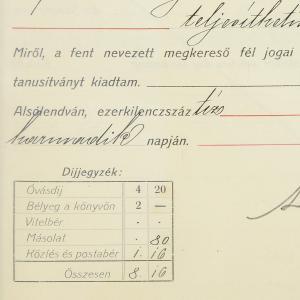 teljesíthetn
Miről, a fent nevezett megkereső fél jogai
tanusítványt kiadtam.
Alsólendván, ezerkilenczszáz tíz
harmadik napján.
Díjjegyzék:
Óvásdíj 4 20
Bélyeg a könyvön 2 —
Vitelbér . .
Másolat . 80
Közlés és postabér 1. 16
Összesen 8. 16